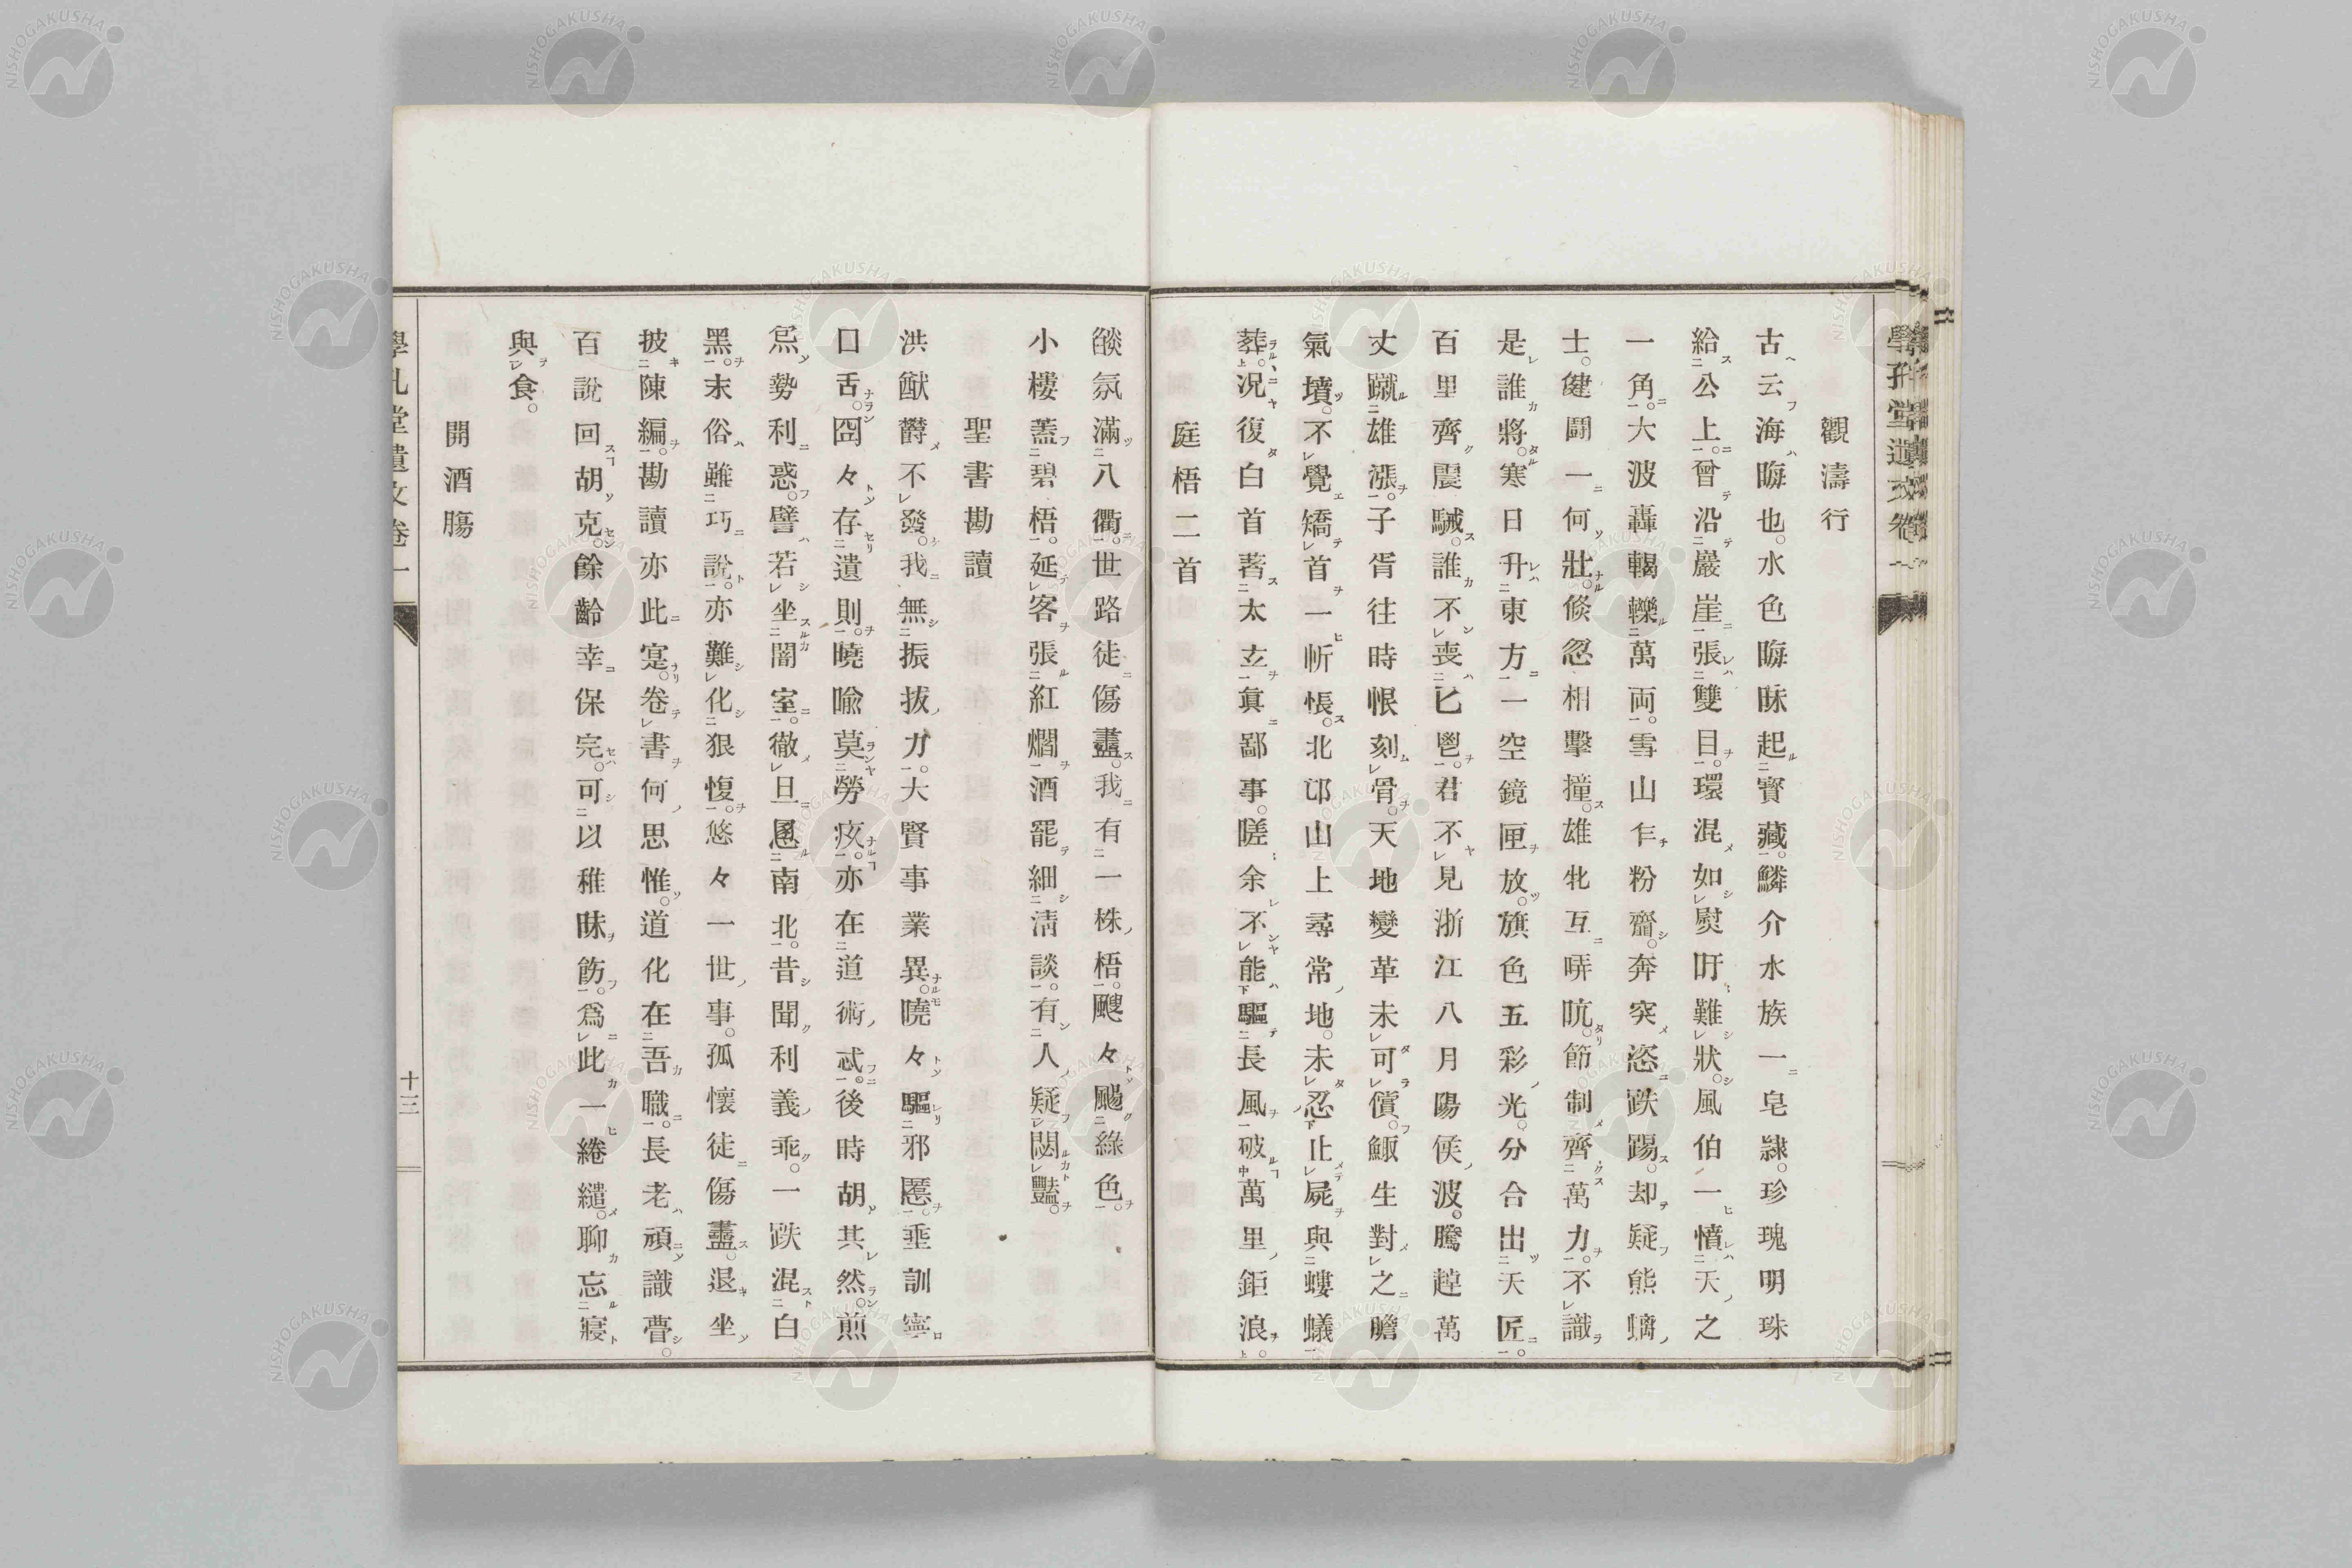 觀濤行
古云海晦也。水色晦昧起寶藏。鱗介水族一皂隷。珍瑰明珠
給公上。曾沿巖崖張雙目。環混如熨盱難狀。風伯一憤天之
一角。大波轟輵轢萬両。雪山乍粉齏。奔突恣跌踢。却疑熊螭
士。健鬪一何壯。倐忽相擊撞。雄牝互哢吭。節制齊萬力。不識
是誰將。寒日升東方一空鏡匣放。旗色五彩光。分合出天匠。
百里齊震駴。誰不喪匕鬯。君不見浙江八月陽侯波。騰趠萬
丈蹴雄漲。子胥往時恨刻骨。天地變革未可償。鯫生對之膽
氣墳。不覺矯首一斨悵。北邙山上尋常地。未忍止屍與螻蟻
葬。况復白首著太玄眞鄙事。嗟余不能驅長風破萬里鉅浪。
庭梧二首
燄氛滿八衢。世路徒傷盡。我有一株梧。颼々颺綠色。
小樓蓋碧梧。延客張紅燗酒罷細淸談。有人疑閟豔。
聖書勘讀
洪猷欝不發。我無振拔力。大賢事業異。曉々驅邪慝。垂訓寧
口舌。冏々存遺則。曉喩莫勞疚。亦在道術忒。後時胡其然。煎
𤇆勢利惑。譬若坐闇室。徹旦慁南北。昔聞利義乖。一跌混白
黑。末俗雖巧說。亦難化狠愎。悠々一世事。孤懷徒傷盡。退坐
披陳編。勘讀亦此寔。卷書何思惟。道化在吾職。長老頑識瞢。
百說回胡克。餘齡幸保完。可以稚昧飭。爲此一綣繾。聊忘寢
與食。
開酒膓
十三